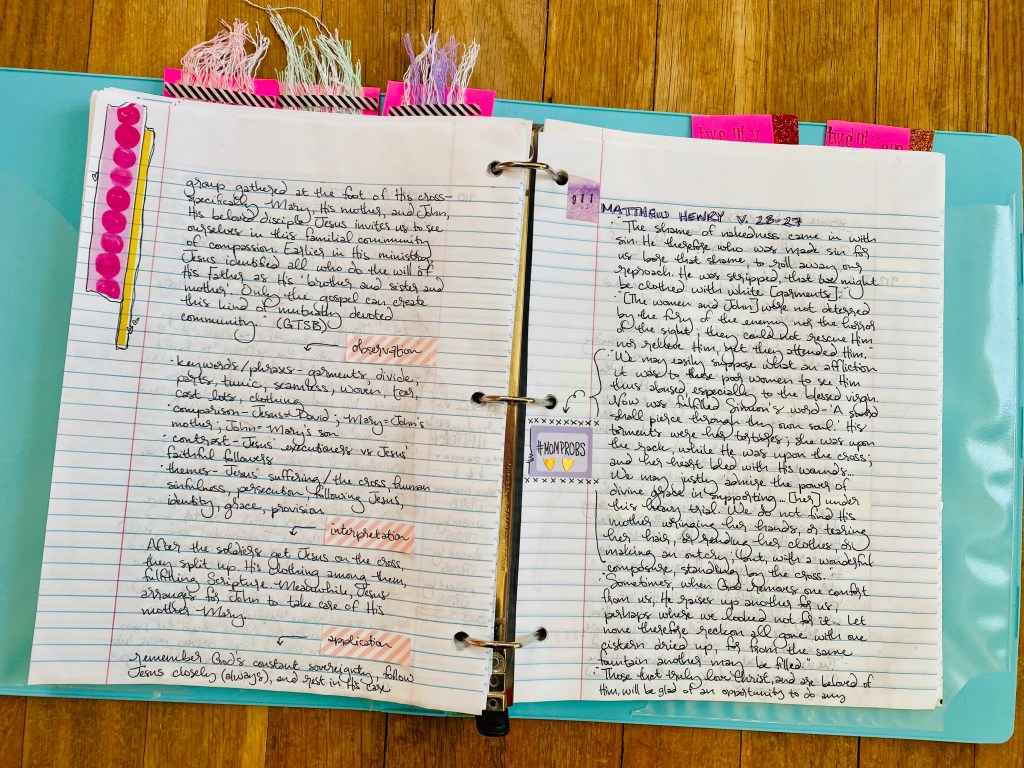 group gathered at the foot of His cross-
specifically Mary, His mother, and John,
His beloved disciple, Jesus invites us to see
ourselves in this familial community
of compassion. Earlier in His ministry,
Jesus identified all who do the will of
His Father as His "brother and sister and
mother". Only the gospel can create
this kind of mutually devoted
community." (GTSB)
observation
·keywords/phrases- garments, divide,
parts, tunic, seamless, woven, tear,
cast lots, clothing
·comparison- Jesus & David; Mary=John's
mother; John=Mary's son
·contrast- Jesus' executioners vs Jesus'
faithful followers
·themes- Jesus' suffering/the cross, human
sinfulness, persecution, following Jesus,
identity, grace, provision
interpretation
After the soldiers get Jesus on the cross,
they split up His clothing among them,
fulfilling Scripture. Meanwhile, Jesus
arranges for John to take care of His
mother Mary.
application
remember God's constant sovereignty, follow
Jesus closely (always), and rest in His care
twenty
MATTHEW HENRY V. 23-27
·"The shame of nakedness came in with
sin. He therefore who was made sin for
us bore that shame, to roll away our
reproach. He was stripped, that we might
be clothed with white [garments]."
·"[The women and John] were not deterred
by the fury of the enemy nor the horror
of the sight; they could not rescue Him
nor relieve Him, yet they attended Him."
·"We may easily suppose what an affliction
it was to these poor women to see Him
thus abused, especially to the blessed virgin.
Now was fulfilled Simeon's word-'A sword
shall pierce through thy own soul.' His
torments were her tortures; she was upon
the rack, while He was upon the cross;
and her heart bled with His wounds...
We may justly admire the power of
divine grace in supporting... [her] under
this heavy trial. We do not find His
mother wringing her hands, or tearing
her hair, or rending her clothes, or
making an outcry. But, with a wonderful
composure, standing by the cross."
#MOMPROBS
·"Sometimes, when God removes one comfort
from us, He raises up another for us,
perhaps where we looked not for it... Let
none therefore reckon all gone with one
cistern dried up, for from the same
fountain another may be filled."
·"Those that truly love Christ, and are beloved of
Him, will be glad of an opportunity to do any